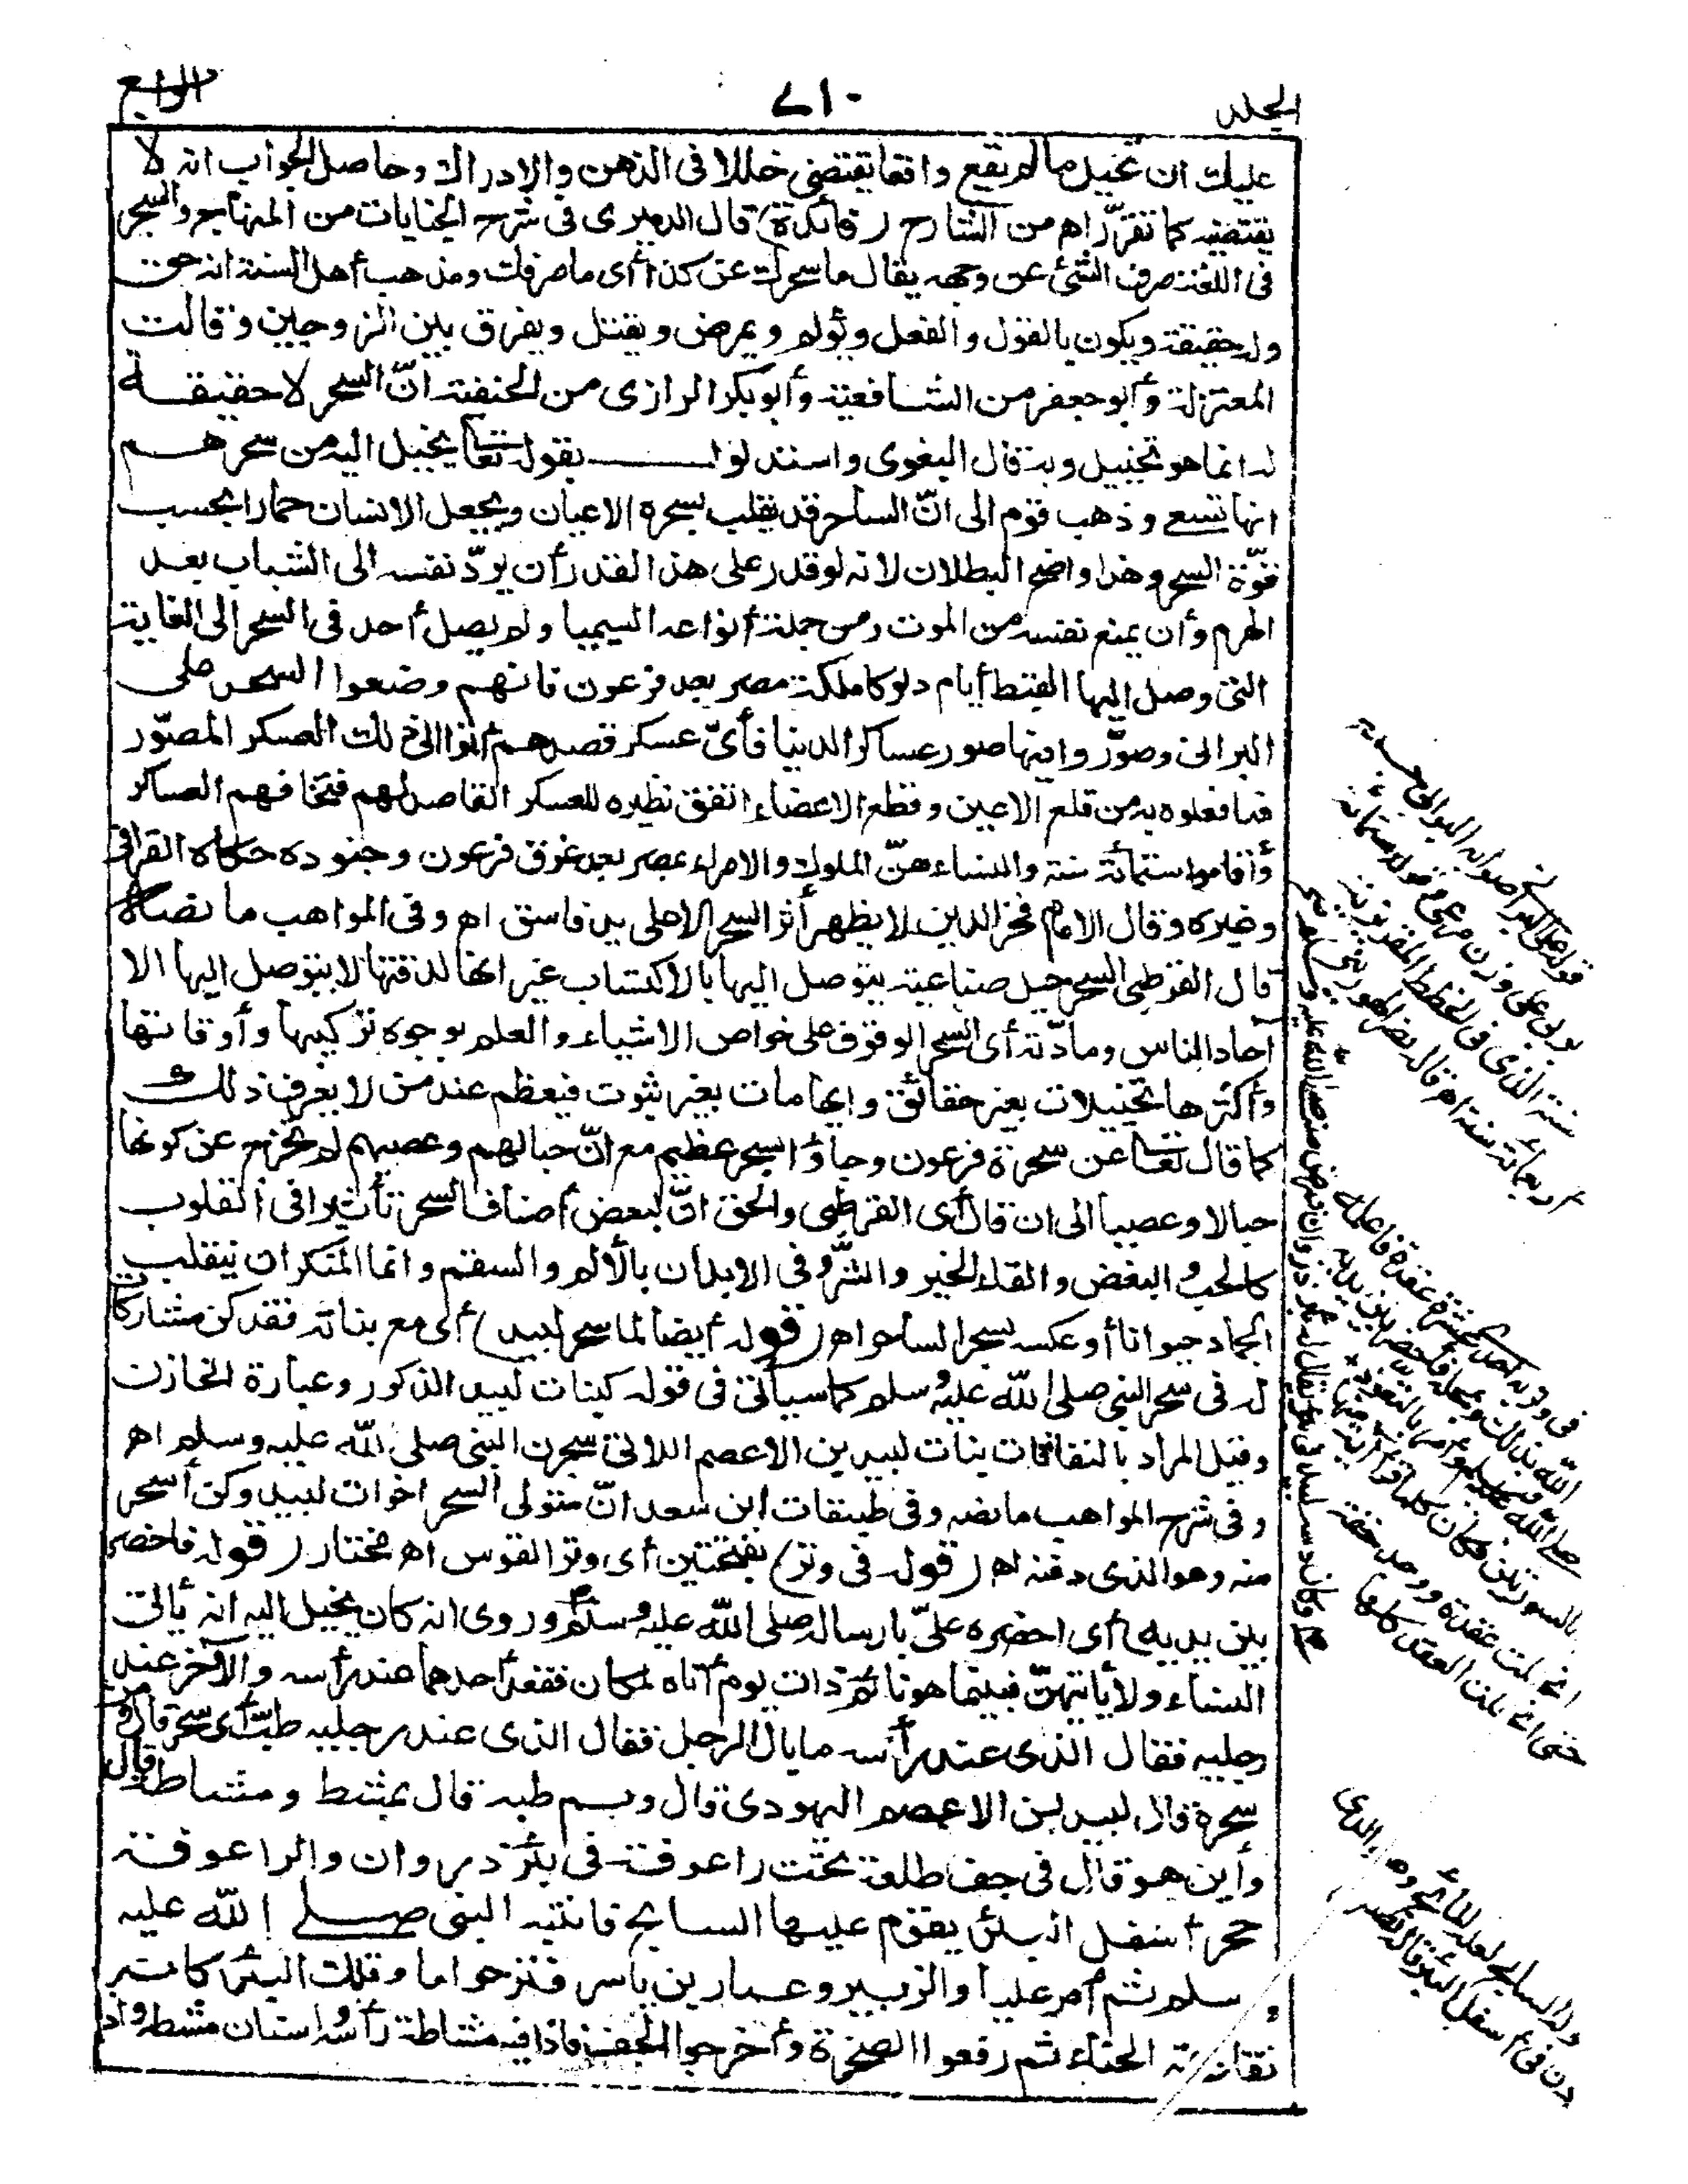 الجلد
٧١٠
الرابع
عليك ان تخيل ما لم يقع واقعا يقتضى خللا فى الذهن والادراك وحاصل الجواب انه لا
يقتضيه كما تقرّر اهـ من الشارح (فائدة) قال الدميرى فى شرح الجنايات من المنهاج والسحر
فى اللغة صرف الشئ عن وجهه يقال ما سحرك عن كذا أى ما صرفك ومذهب أهل السنة انه حق
وله حقيقة ويكون بالقول والفعل ويؤلم ويمرض ويقتل ويفرق بين الزوجين وقالت
المعتزلة وأبو جعفر من الشافعية وأبو بكر الرازى من الحنفية انّ السحر لا حقيقة
له انما هو تخييل وبه قال البغوى واستدلوا بقوله تعا يخيل اليه من سحرهم
انها تسعى وذهب قوم الى انّ الساحر قد يقلب بسحره الاعيان ويجعل الانسان حمارا بحسب
قوّة السحر وهذا واضح البطلان لانه لو قدر على هذا القدر أن يردّ نفسه الى الشباب بعد
الهرم وأن يمنع نفسه من الموت ومن جملة أنواعه السيميا ولم يصل أحد فى السحر الى الغاية
التى وصل اليها القبط أيام دلوكا ملكة مصر بعد فرعون فانهم وضعوا السحر على
البرابى وصوّروا فيها صور عساكر الدنيا فأىّ عسكر قصدهم أتوا الى ذلك العسكر المصوّر
فما فعلوه به من قلع الاعين وقطع الاعضاء اتفق نظيره للعسكر القاصد لهم فتخافهم العساكر
وأقاموا ستمائة سنة والنساء هنّ الملوك والامراء بمصر بعد غرق فرعون وجنوده حكاه القرافى
وغيره وقال الامام فخر الدين لا يظهر أثر السحر الا على يد فاسق اهـ وفى المواهب ما نصه
قال القرطبى السحر حيل صناعية يتوصل اليها بالاكتساب غير انها لدقتها لا يتوصل اليها الا
آحاد الناس ومادّته أى السحر الوقوف على خواص الاشياء والعلم بوجوه تركيبها وأوقاتها
وأكثرها تخييلات بغير حقائق وايهامات بغير ثبوت فيعظم عند من لا يعرف ذلك
كما قال تعا عن سحرة فرعون وجاؤا بسحر عظيم مع انّ حبالهم وعصيهم لم تخرج عن كونها
حبالا وعصيا الى ان قال أى القرطبى والحق انّ لبعض أصناف السحر تأثيرا فى القلوب
كالحب والبغض والقاء الخير والشرّ وفى الابدان بالالم والسقم وانما المنكر ان ينقلب
الجماد حيوانا أو عكسه بسحر الساحر اهـ (قوله أيضا لما سحر لبيد) أى مع بناته فقد كن مشاركات
له فى سحر النبى صلى الله عليه وسلم كما سيأتى فى قوله كبنات لبيد المذكور وعبارة الخازن
وقيل المراد بالنفاثات بنات لبيد بن الاعصم اللاتى سحرن النبى صلى الله عليه وسلم اهـ
وفى شرح المواهب ما نصه وفى طبقات ابن سعد انّ متولى السحر اخوات لبيد وكن أسحر
منه وهو الذى دفنه اهـ (قوله فى وتر) بفتحتين أى وتر القوس اهـ مختار (قوله فاحضر
بين يديه) أى احضره علىّ بارساله صلى الله عليه وسلم وروى انه كان يخيل اليه انه يأتى
النساء ولا يأتيهنّ فبينما هو نائم ذات يوم أتاه ملكان فقعد أحدهما عند رأسه والآخر عند
رجليه فقال الذى عند رأسه ما بال الرجل فقال الذى عند رجليه طبّ أى سحر قال ومن
سحره قال لبيد بن الاعصم اليهودى قال وبم طبه قال بمشط ومشاطة قال
وأين هو قال فى جف طلعة تحت راعوفة فى بئر ذروان والراعوفة
حجر أسفل البئر يقوم عليها السابح فانتبه النبى صلى الله عليه
وسلم ثم أمر عليا والزبير وعمار بن ياسر فنزحوا ماء تلك البئر كانه
نقاعة الحناء ثم رفعوا الصخرة وأخرجوا الجف فاذا فيه مشاطة رأسه واسنان مشطه واذا